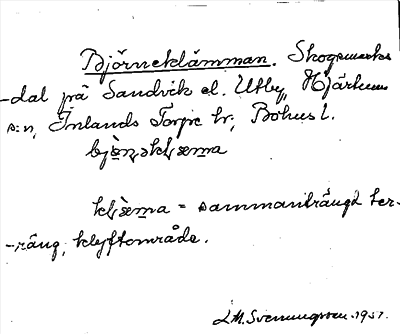 Björneklämman. Skogsmarks
-dal på Sandvik el. Utby, Hjärtums
s:n, Inlands Torpe hr, Bohusl.
klɛ̀ma = sammanträngd ter-
-räng, klyftområde.
L.M. Svenungsson. 1931.